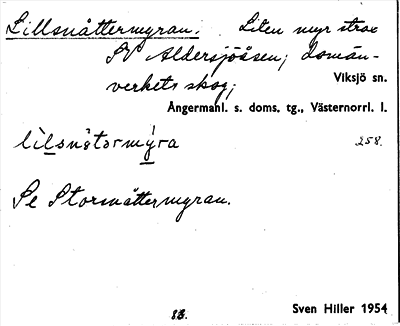 Lillsnåttermyran. Liten myr strax
SV Aldersjöåsen; domän-
verkets skog;
Viksjö sn.
Ångermanl. s. doms. tg., Västernorrl. l.
lìlsnåtərmy̍ra 258.
Se Storsnåttermyran.
Sven Hiller 1954